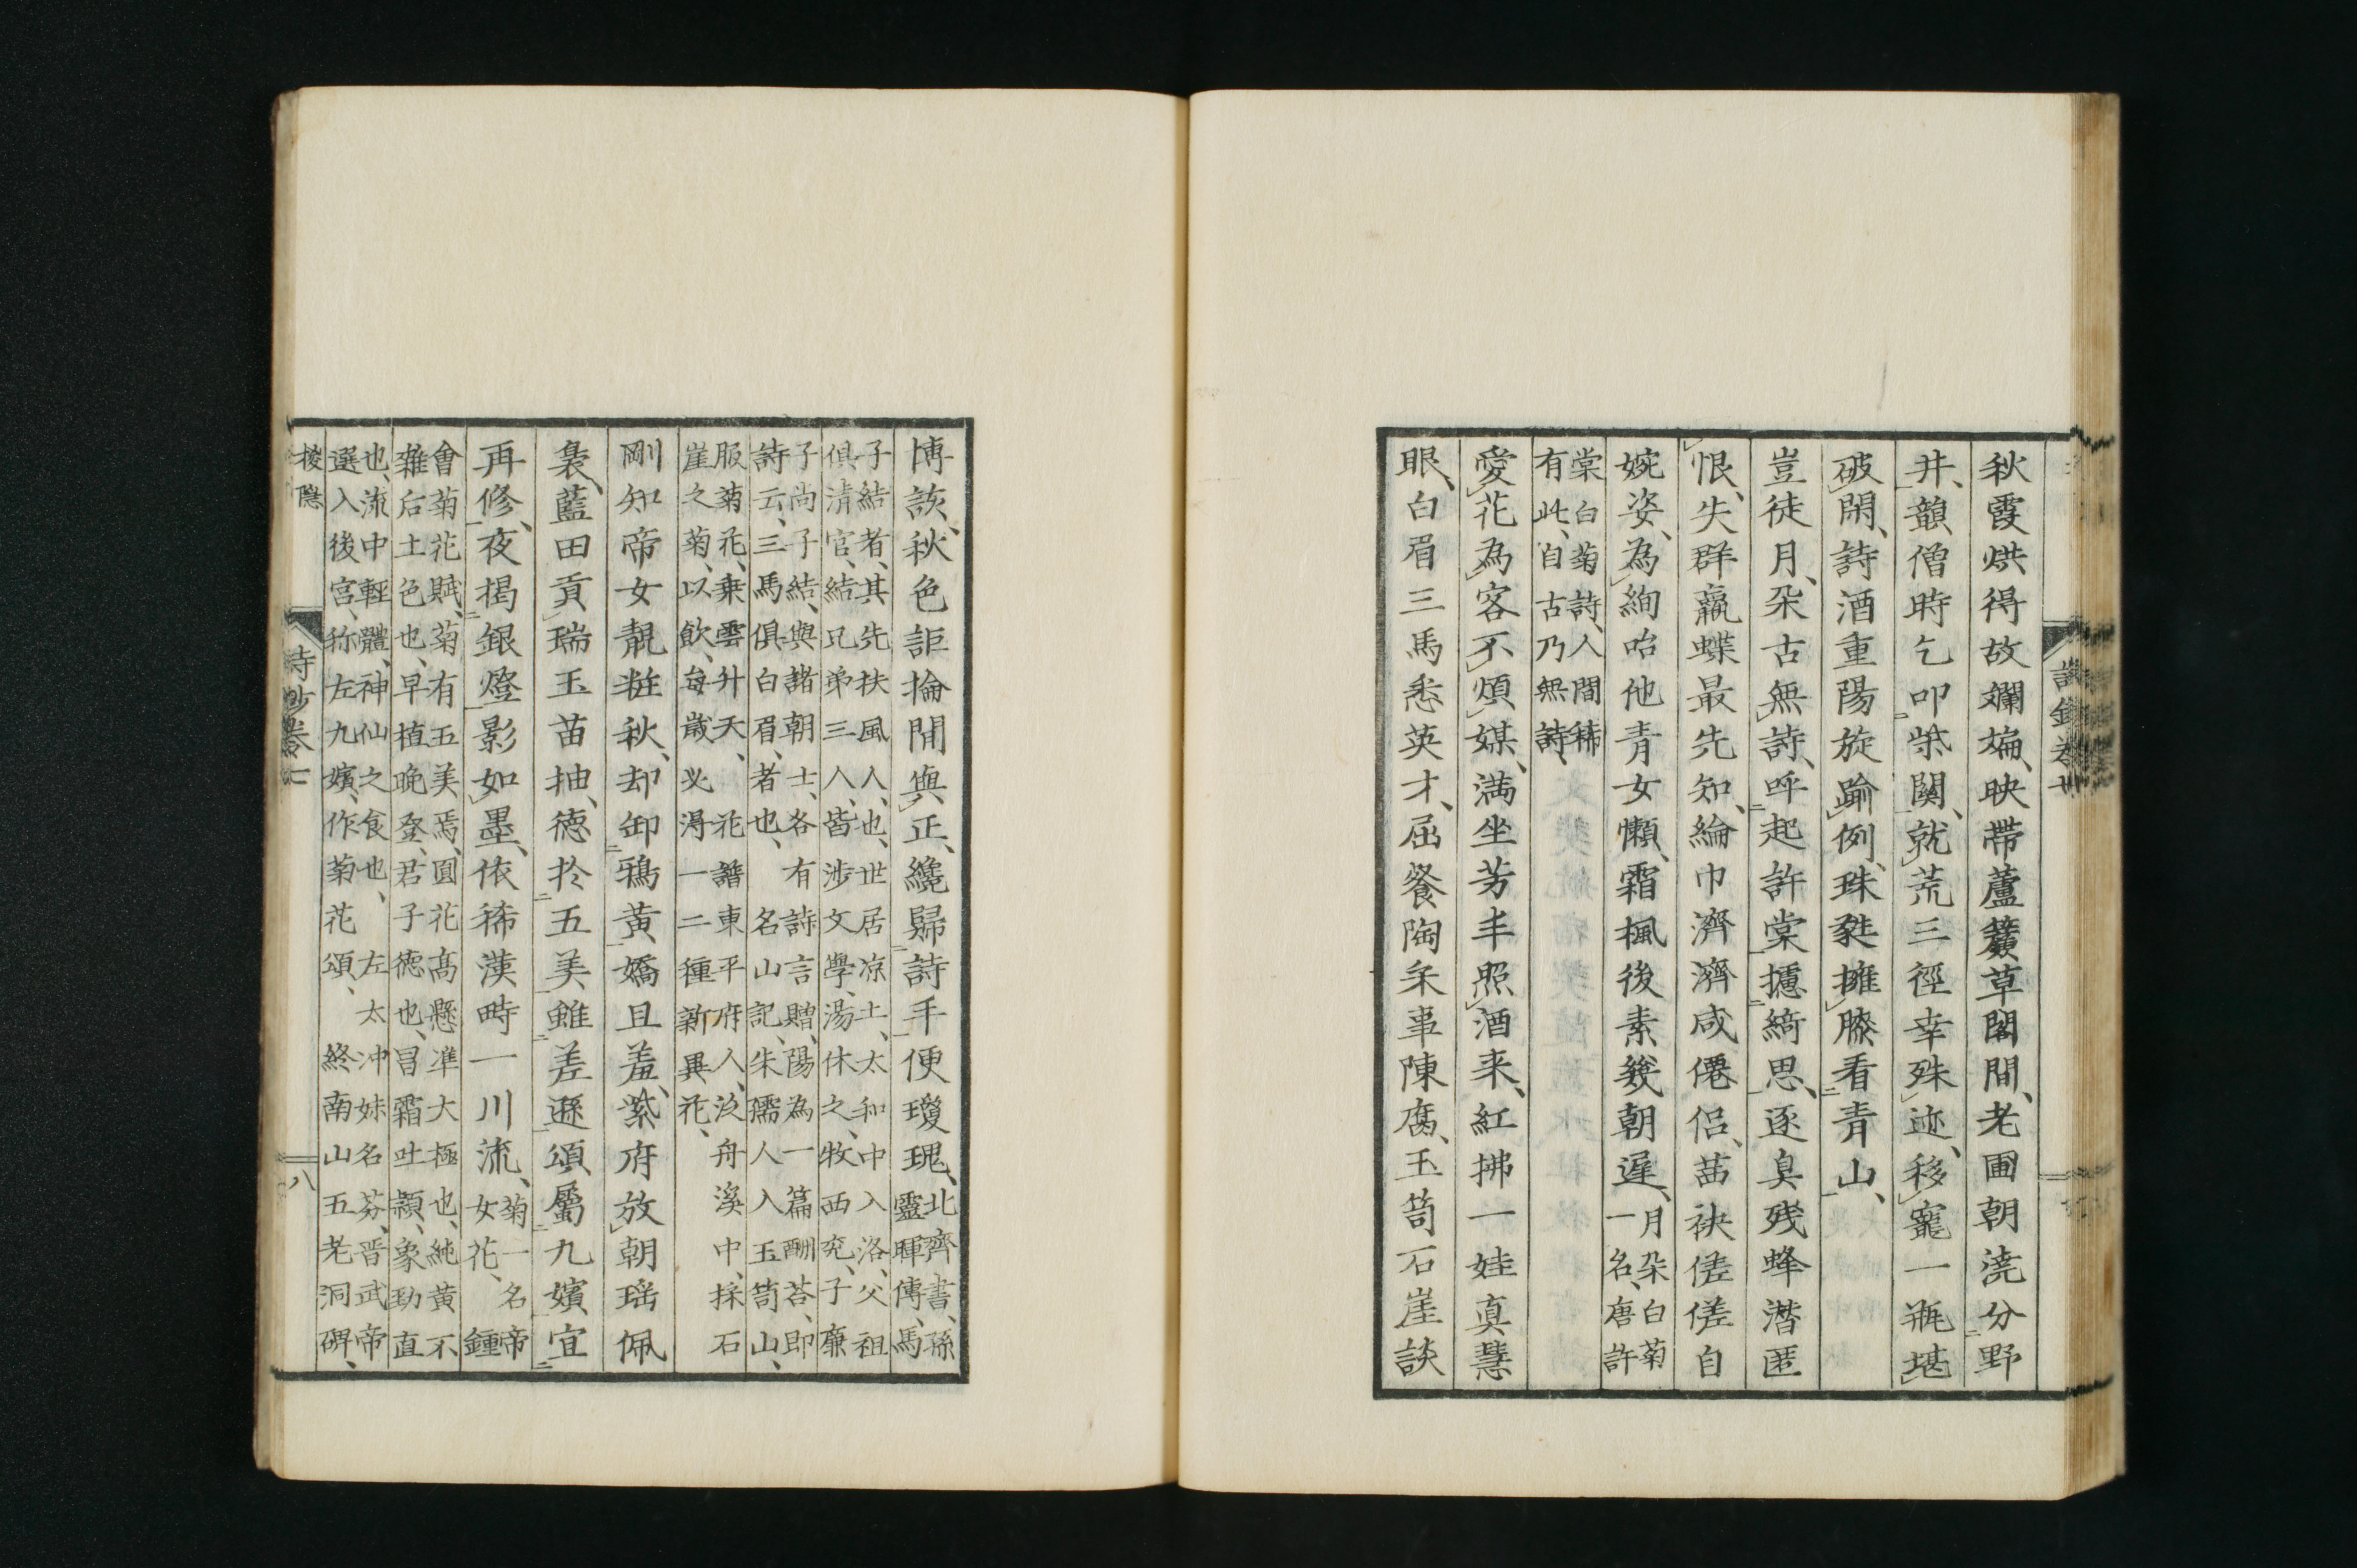 秋霞烘得故斕斒、映帶蘆籬草閣間、老圃朝澆分野
井、韻僧時乞叩柴關、就荒三徑幸殊迹、移寵一瓶堪
破閑、詩酒重陽旋踰例、珠甤擁膝看青山、
豈徒月朶古無詩、呼起許棠攄綺思、逐臭残蜂潜匿
恨、失群羸蝶最先知、綸巾濟濟咸僊侶、茁袂傞傞自
婉姿、為絢咍他青女懶、霜楓後素幾朝遲、
月朶白菊
一名、唐許
棠白菊詩、人間稀
有此、自古乃無詩、
愛花為客不煩媒、満坐芳丰照酒来、紅拂一娃真慧
眼、白眉三馬悉英才、屈餐陶采事陳腐、玉笥石崖談
博詼、秋色詎掄閒與正、纔歸詩手便瓊瑰、
北齊書、孫
靈暉傳、馬
子結者、其先扶風人也、世居凉土、太和中入洛、父祖
俱清官、結兄弟三人、皆涉文學、湯休之、牧西兖、子廉
子尚子結、與諸朝士、各有詩言贈、陽為一篇酬荅、即
詩云、三馬俱白眉、者也、名山記、朱孺人入玉笥山、
服菊花、乗雲升天、花譜東平府人、泛舟溪中、採石
崖之菊、以飲、每歳必淂一二種新異花、
剛知帝女靚粧秋、却卸鴉黃嬌且羞、紫府放朝瑶佩
裊、藍田貢瑞玉苗抽、徳扵五美雖差遜、頌屬九嬪宜
再修、夜揭銀燈影如墨、依稀漢畤一川流、
菊一名帝
女花、鍾
會菊花賦、菊有五美焉、圓花高懸準大極也、純黄不
雜后土色也、早植晩登、君子徳也、昌霜吐潁、象勁直
也、流中輕體、神仙之食也、左太冲妹名芬、晋武帝
選入後宮、称左九嬪、作菊花頌、終南山五老洞碑、
詩鈔巻七
八